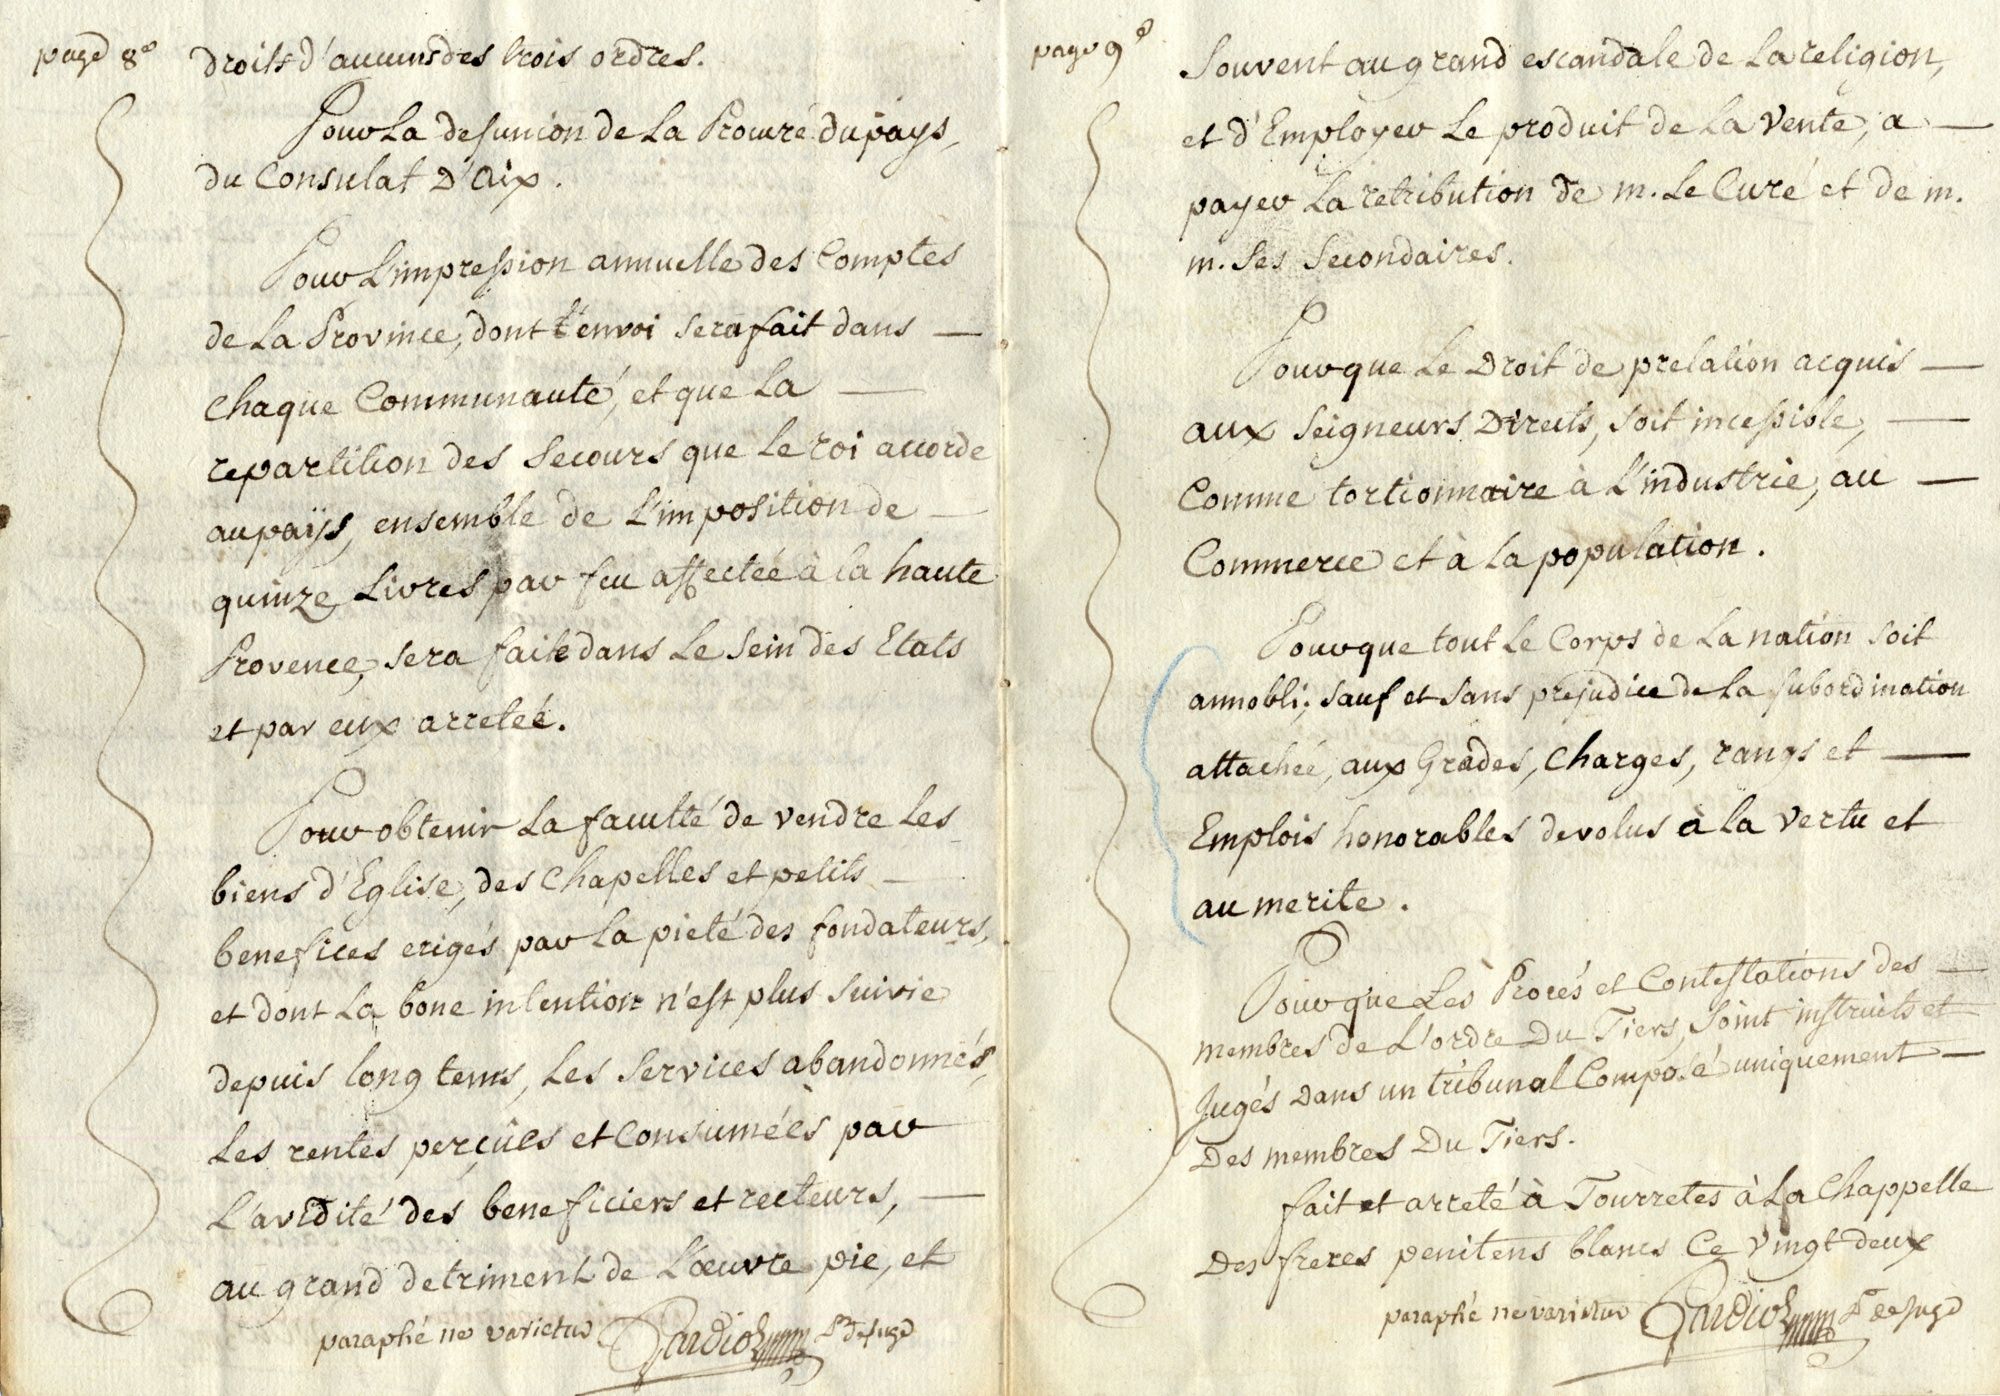 page 8e
droits d'aucuns des trois ordres.
Pour La desunion de La Procure du pays,
du Consulat D'Aix.
Pour L'impression annuelle des Comptes
de La Province, dont l'envoi sera fait dans —
chaque Communauté, et que La —
repartition des secours que Le roi accorde
au païs, ensemble de L'imposition de —
quinze Livres par feu affectée à la haute
Provence, sera faite dans Le sein des Etats
et par eux arretée.
Pour obtenir La faculté de vendre Les
biens d'Eglise, des Chapelles et petits —
benefices erigés par La pieté des fondateurs,
et dont La bone intention n'est plus suivie
depuis long tems, Les services abandonnés,
Les rentes perçûes et Consumées par
L'avidité des beneficiers et recteurs, —
au grand detriment de L'œuvre pie, et
paraphé ne varietur Gardiol Lt de juge
page 9e
Souvent au grand escandale de La religion,
et d'Employer Le produit de La Vente, a —
payer La retribution de m. Le Curé et de m.
m. Ses Secondaires.
Pour que Le Droit de prelation acquis —
aux Seigneurs Directs, soit incessible, —
Comme tortionnaire à L'industrie, au —
Commerce et à La population.
Pour que tout Le Corps de La nation soit
annobli; sauf et sans prejudice de La subordination
attachée, aux Grades, Charges, rangs et —
Emplois honorables devolus à la vertu et
au merite.
Pour que Les Procés et Contestations des —
membres de L'ordre Du Tiers, soint instruits et
Jugés Dans un tribunal Composé uniquement —
Des membres Du Tiers.
fait et arreté à Tourretes à La Chappelle
Des freres penitens blancs Ce vingt deux
paraphé ne varietur Gardiol Lt de juge